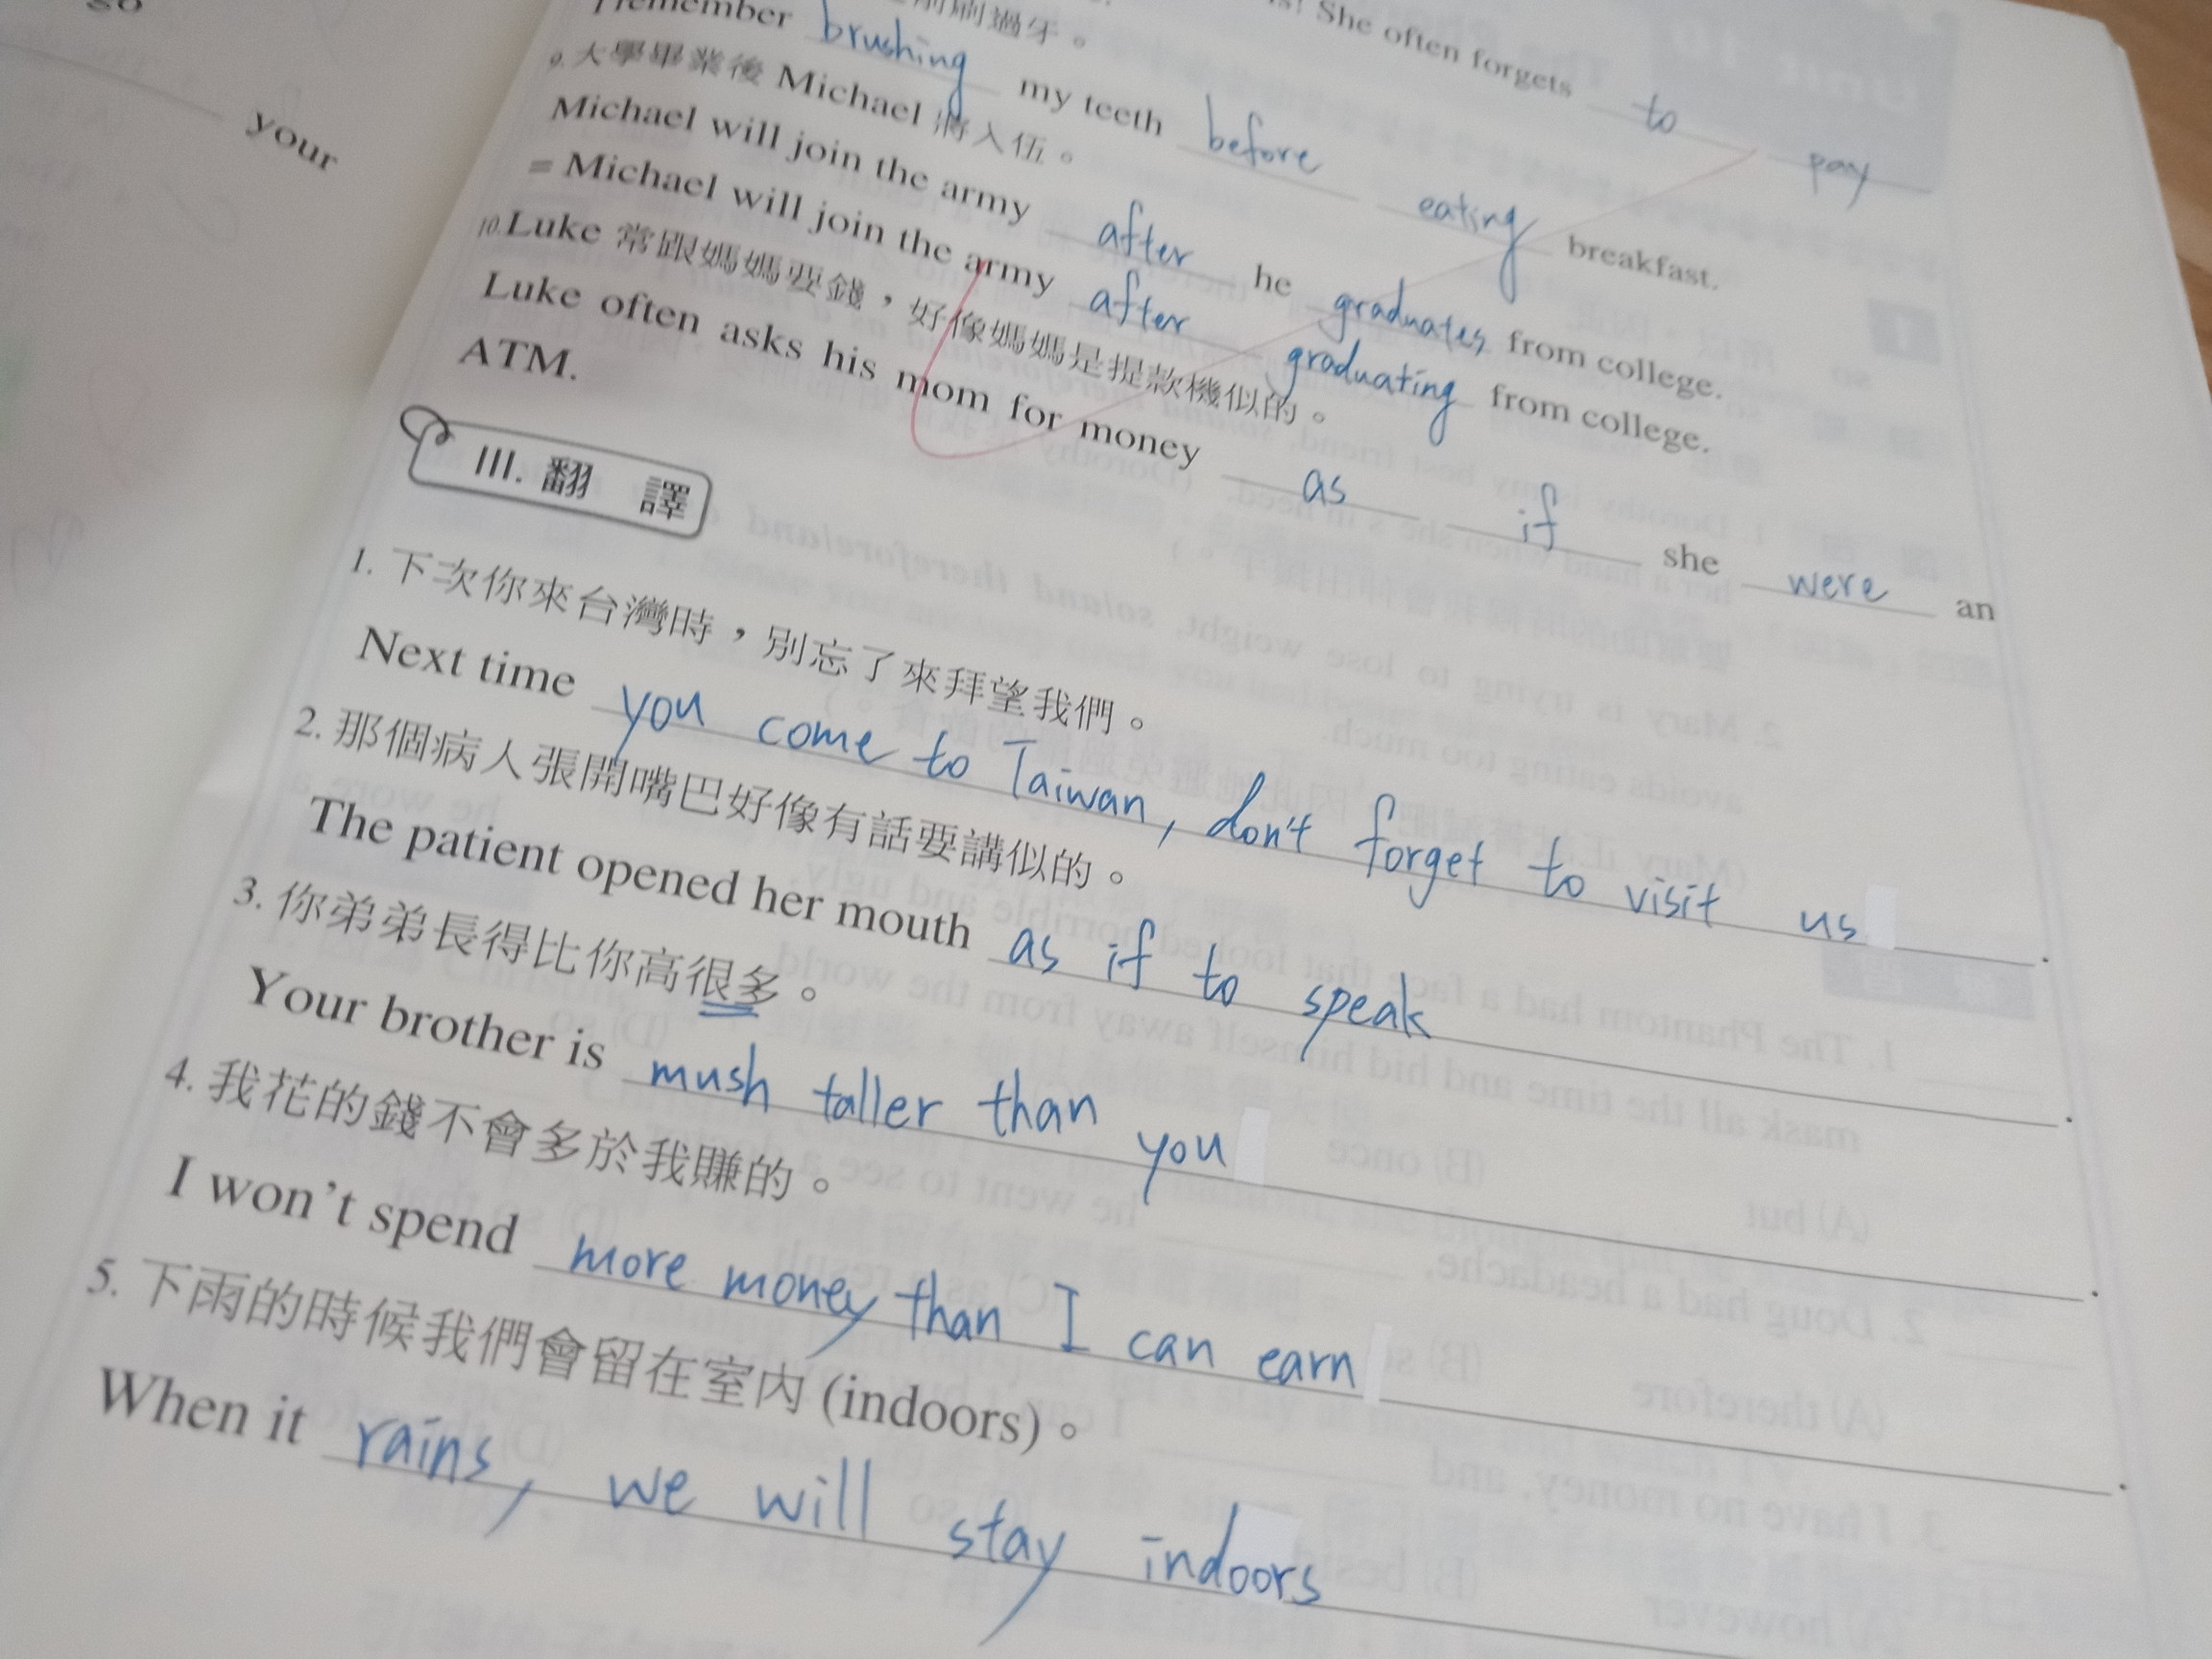 go
your
She often forgets to pay
前刷過牙。
I remember brushing my teeth before eating breakfast.
9. 大學畢業後 Michael 將入伍。
Michael will join the army after he graduates from college.
= Michael will join the army after graduating from college.
10. Luke 常跟媽媽要錢，好像媽媽是提款機似的。
Luke often asks his mom for money as if she were an
ATM.
III. 翻 譯
1. 下次你來台灣時，別忘了來拜望我們。
Next time you come to Taiwan, don't forget to visit us.
2. 那個病人張開嘴巴好像有話要講似的。
The patient opened her mouth as if to speak.
3. 你弟弟長得比你高很多。
Your brother is mush taller than you.
4. 我花的錢不會多於我賺的。
I won't spend more money than I can earn.
5. 下雨的時候我們會留在室內 (indoors)。
When it rains, we will stay indoors